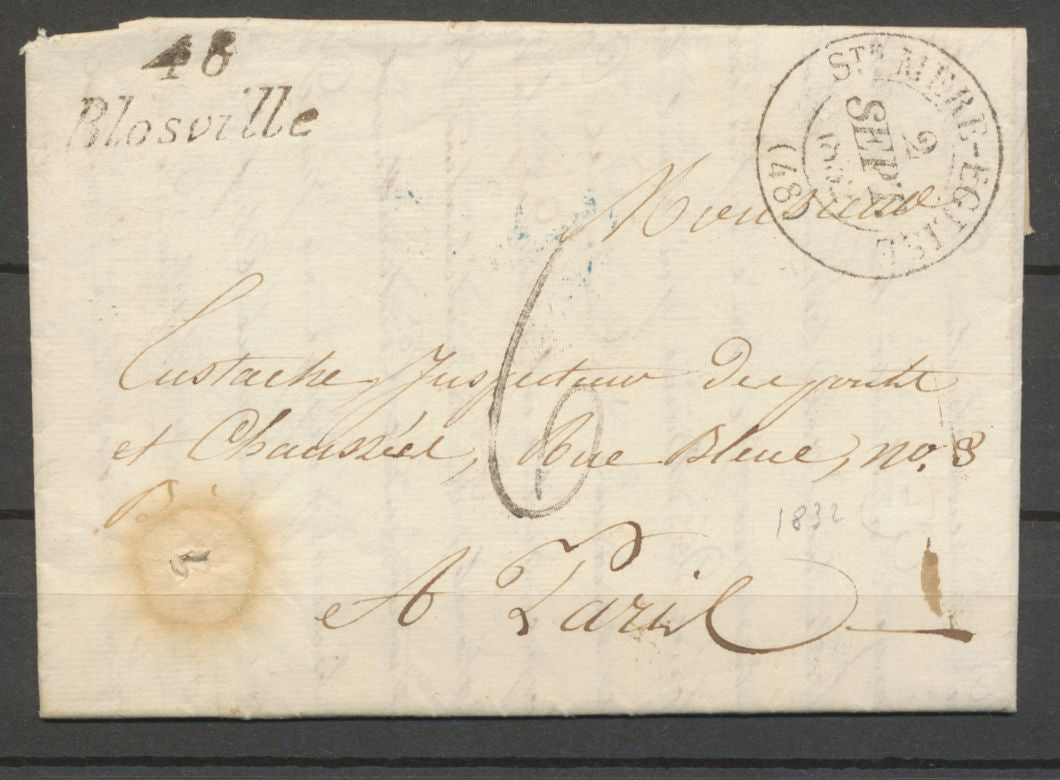 48
Blosville
STE MERE-EGLISE
2
SEPT
1832
(48)
Monsieur
6
Eustache, Inspecteur des ponts
et Chaussées, Rue Bleue, no. 8
1832
A Paris